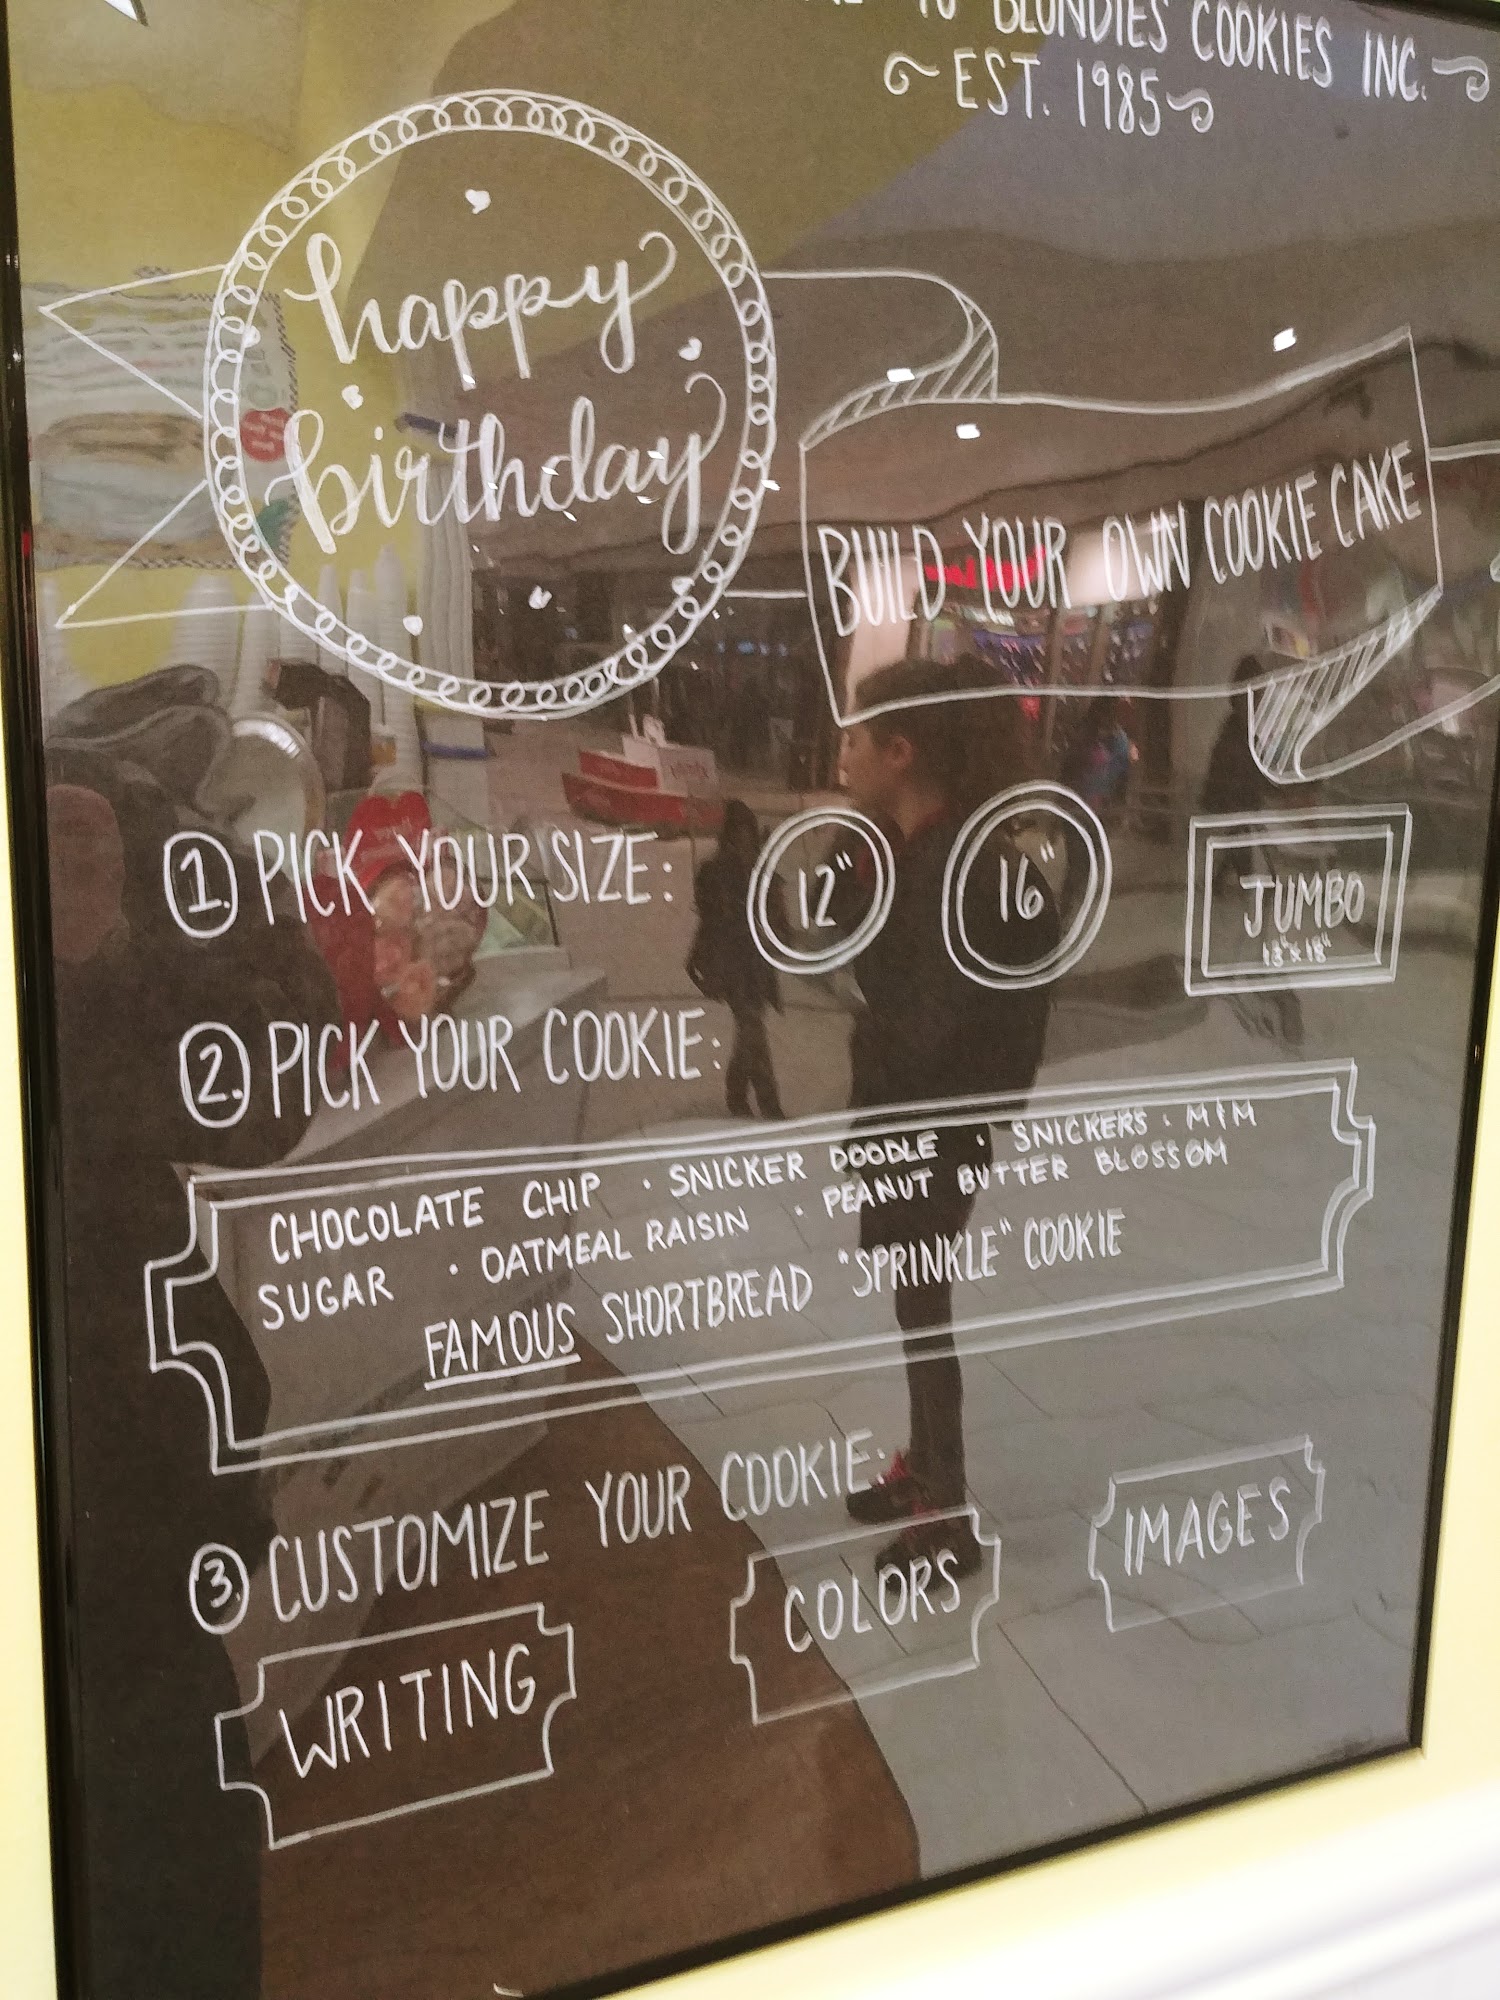 TO BLONDIES COOKIES INC.
EST. 1985
happy
birthday
BUILD YOUR OWN COOKIE CAKE
1. PICK YOUR SIZE:
12"
16"
JUMBO
13"x18"
2. PICK YOUR COOKIE:
CHOCOLATE CHIP · SNICKER DOODLE · SNICKERS · M&M
SUGAR · OATMEAL RAISIN · PEANUT BUTTER BLOSSOM
FAMOUS SHORTBREAD "SPRINKLE" COOKIE
3. CUSTOMIZE YOUR COOKIE:
WRITING
COLORS
IMAGES